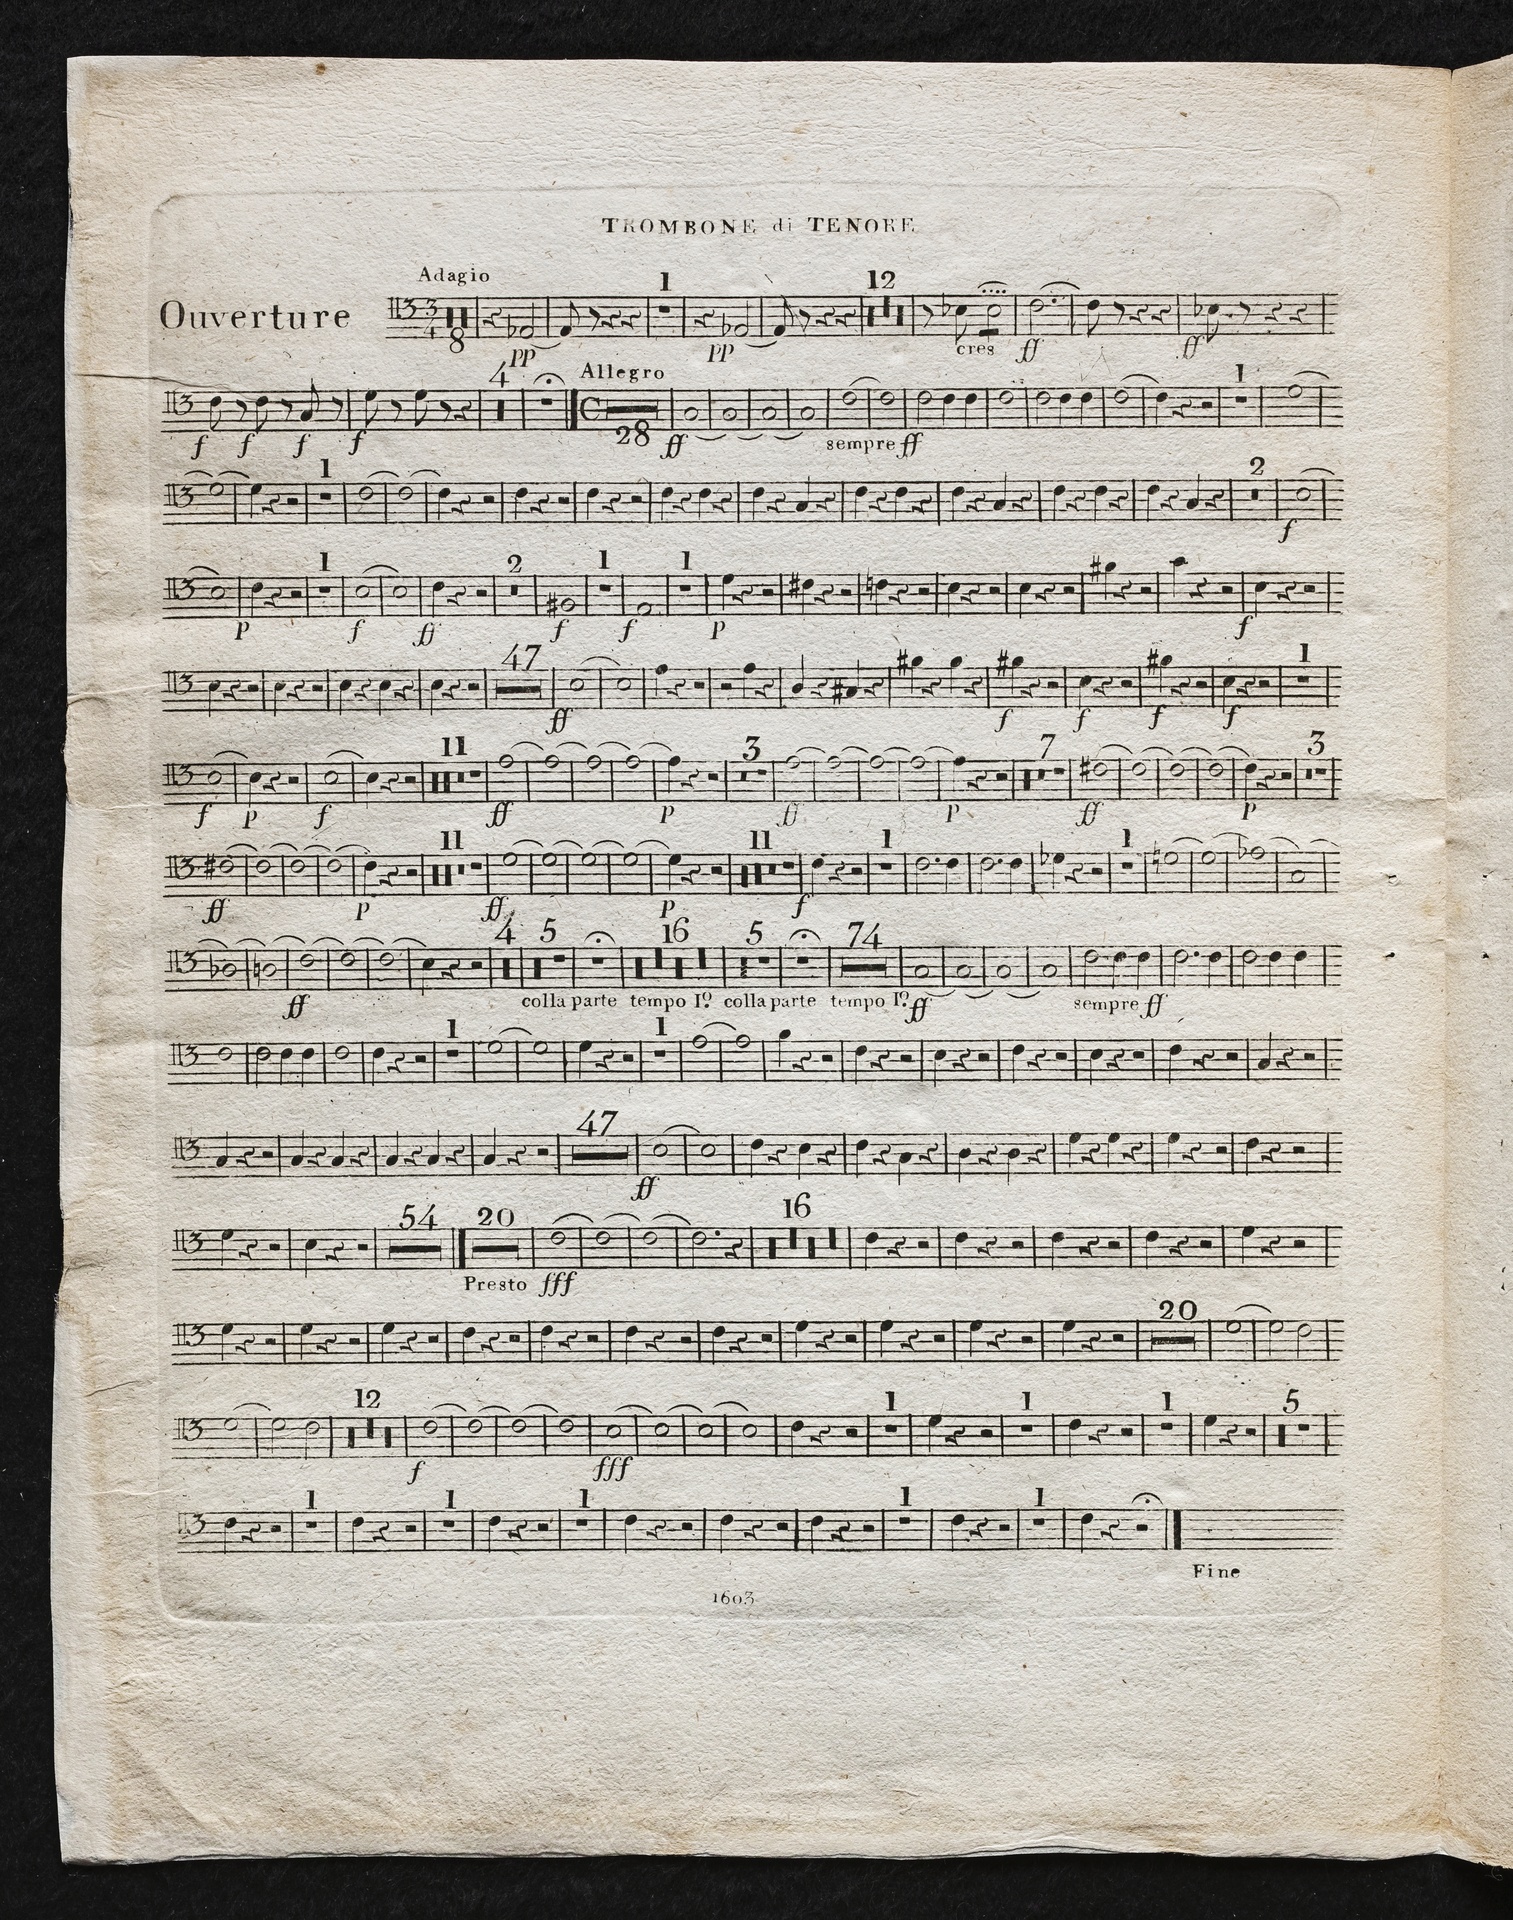 TROMBONE di TENORE
Adagio
Ouverture
3 4 8 1 12
pp pp cres ff ff
4 Allegro 1
C 28
f f f f ff sempre ff
1 2
f
1 2 1 1
p f ff f f p f
47 1
ff f f f f
11 3 7 3
f p f ff p ff p ff p
11 11 1 1
ff p ff p f
4 5 16 5 74
ff colla parte tempo Iº colla parte tempo Iº ff sempre ff
1 1
47
ff
54 20 16
Presto fff
20
12 1 1 1 5
f fff
1 1 1 1 1
Fine
1603